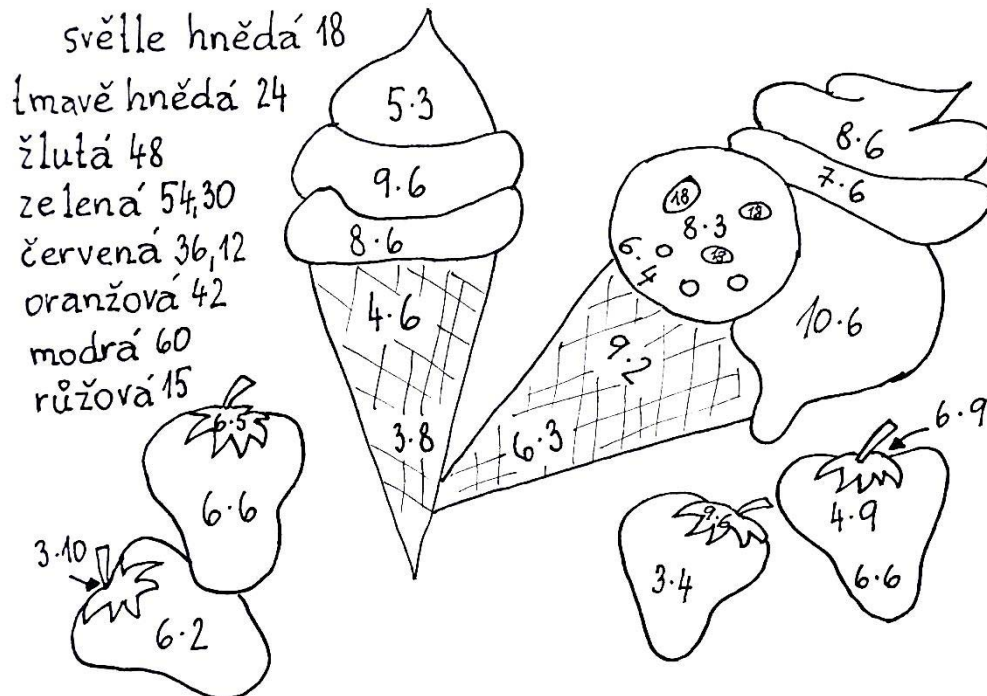 světle hnědá 18
tmavě hnědá 24
žlutá 48
zelená 54,30
červená 36,12
oranžová 42
modrá 60
růžová 15
5·3
9·6
8·6
4·6
3·8
8·6
7·6
18
18
8·3
18
6·4
10·6
9·2
6·3
6·5
6·6
3·10
6·2
6·9
4·9
6·6
9·6
3·4